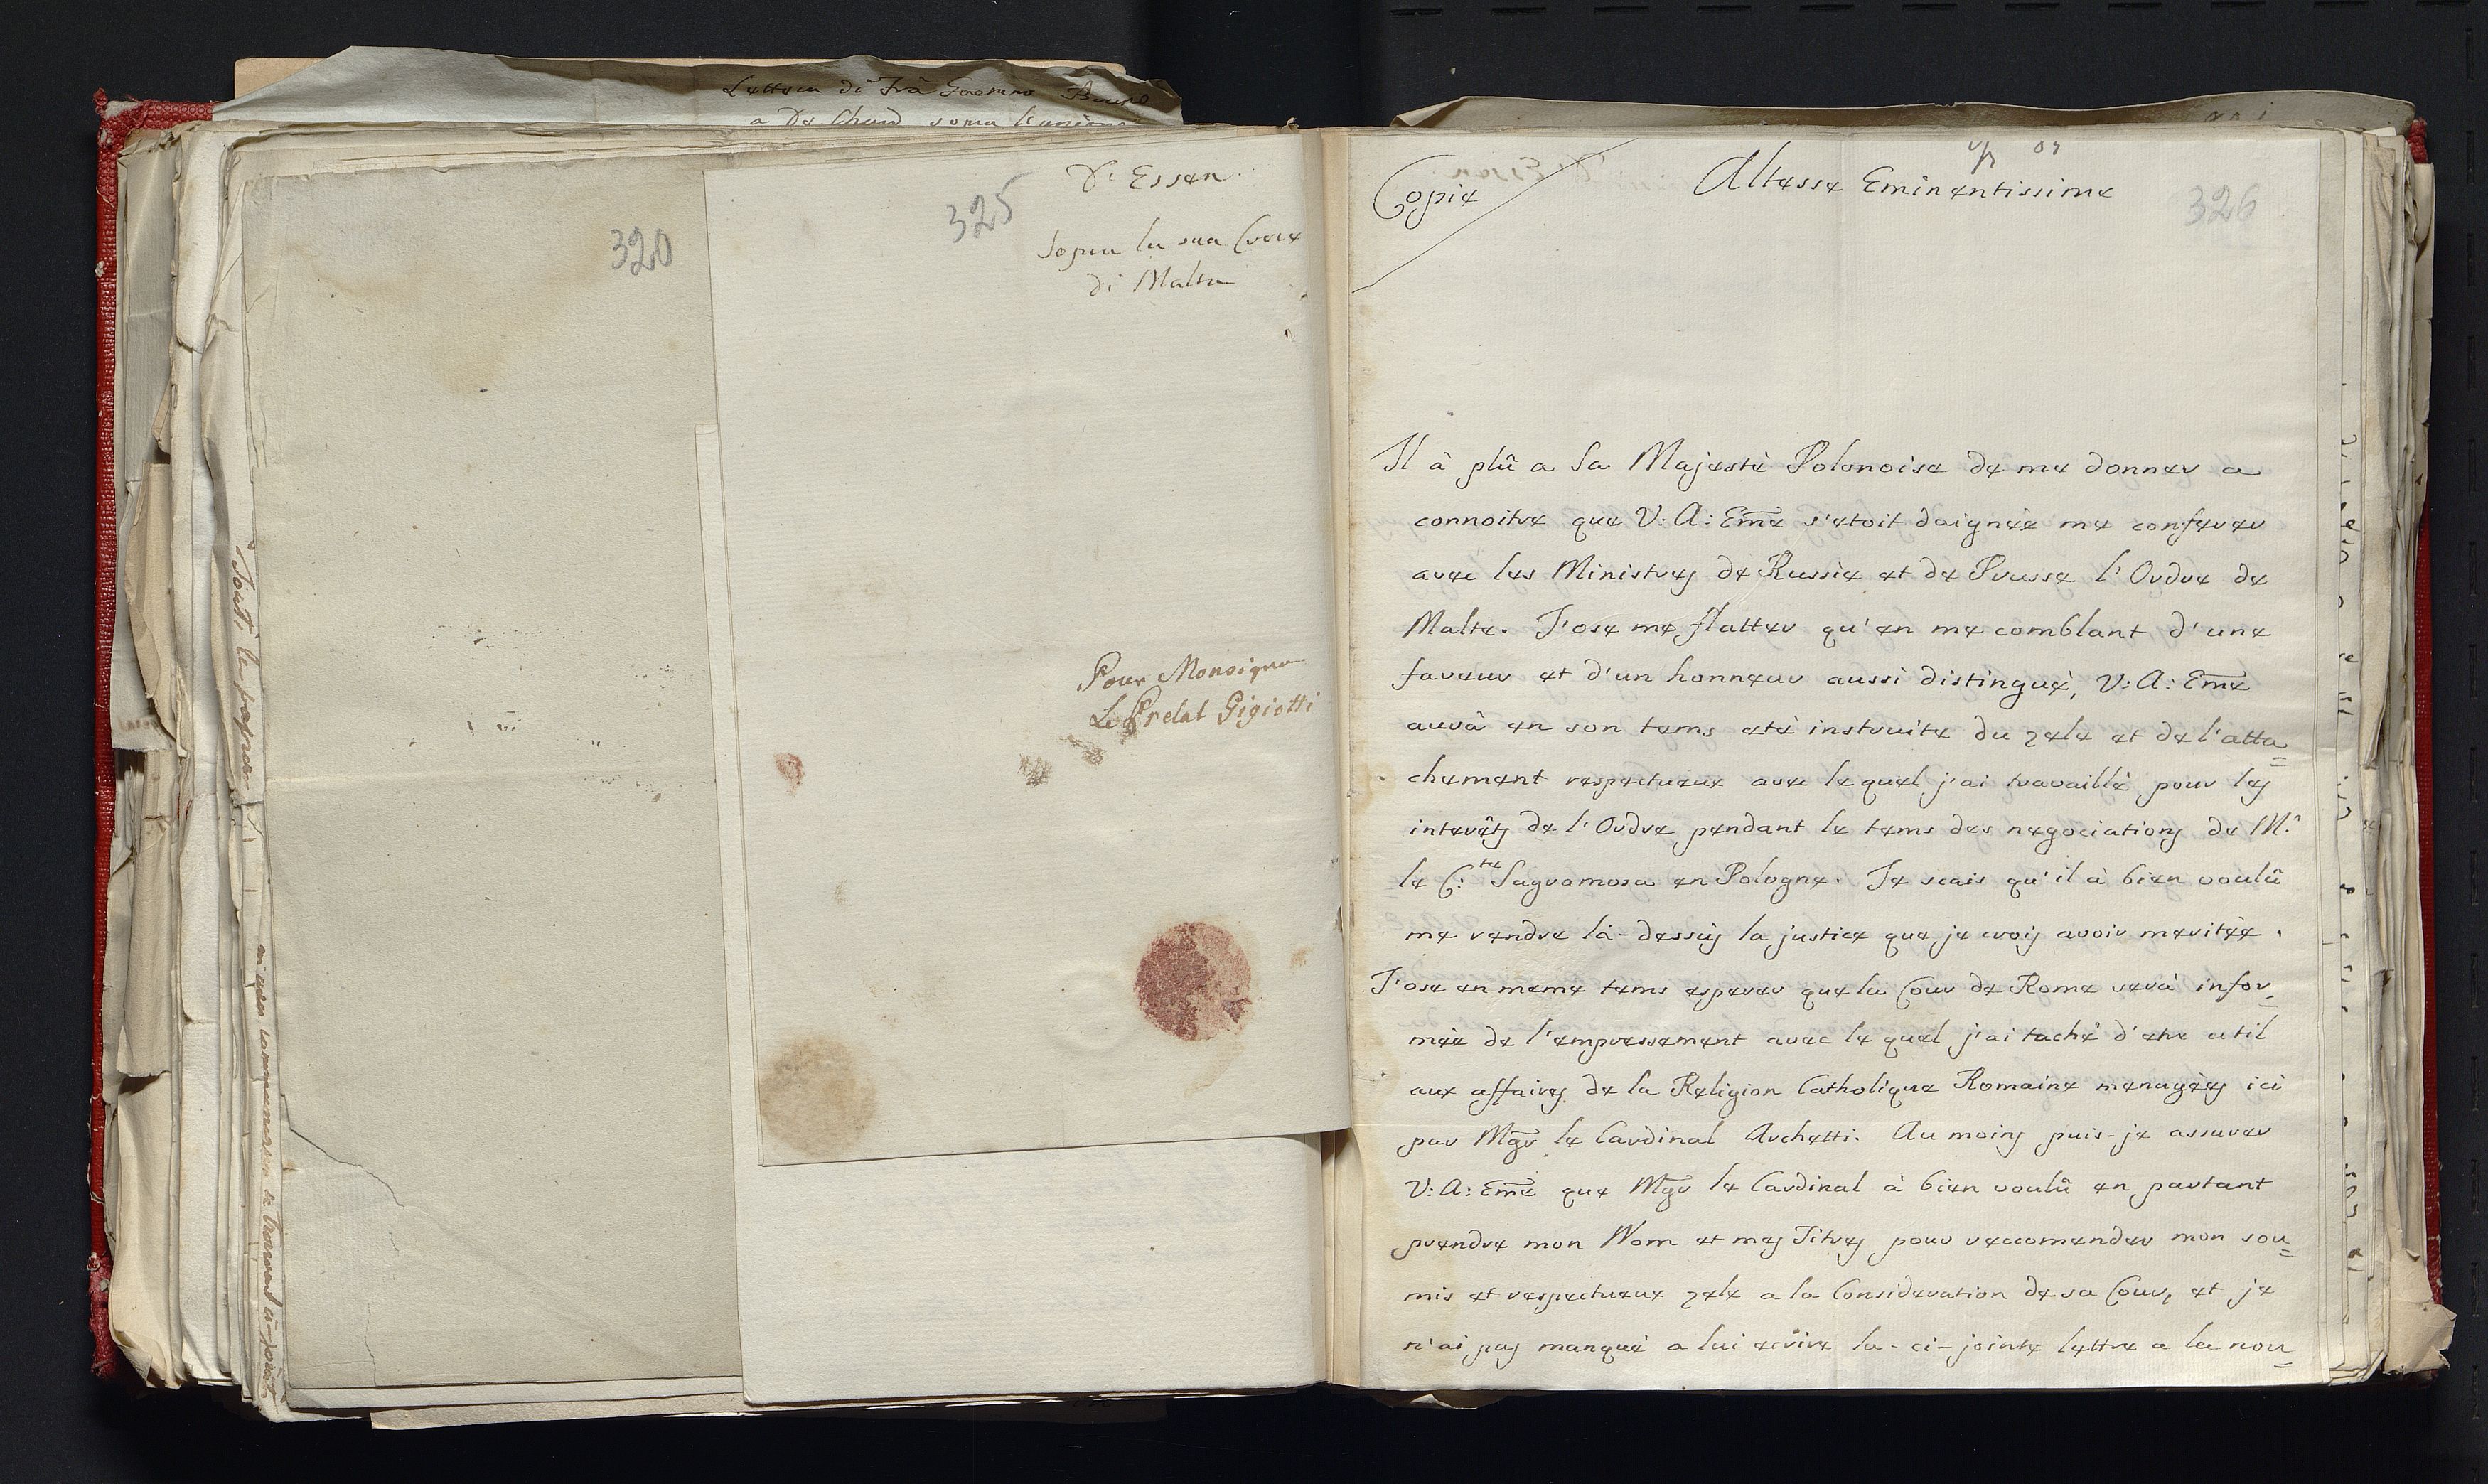 Lettera di Frà Gaetano Bruno
320
325
D'Essen.
Sopra la sua Croce
di Malta
Pour Monsigne
Le Prelat Gigiotti
326
Copie
Altesse Eminentissime
Il à plû a Sa Majestè Polonoise de me donner a
connoitre que V: A: Eme s'etoit daignée me conferer
avec les Ministres de Russie et de Prusse l'Ordre de
Malte. J'ose me flatter qu'en me comblant d'une
faveur et d'un honneur aussi distinguè, V: A: Eme
aurà en son tems etè instruite du zele et de l'atta=
chement respectueux avec le quel j'ai travaillè pour les
interêts de l'Ordre pendant le tems des negociations de Mr
le C:te Sagramosa en Pologne. Je scais qu'il à bien voulû
me rendre là-dessus la justice que je crois avoir meritèe.
J'ose en meme tems esperer que la Cour de Rome serà infor=
mèe de l'empressement avec le quel j'ai tachè d'etre util
aux affaires de la Religion Catholique Romaine menagèes ici
par Mgr le Cardinal Archetti. Au moins puis-je assurer
V: A: Eme que Mgr le Cardinal à bien voulû en partant
prendre mon Nom et mes Titres pour reccomender mon sou=
mis et respectueux zele a la Consideration de sa Cour, et je
n'ai pas manquè a lui ecrire la-ci-jointe lettre a la nou=